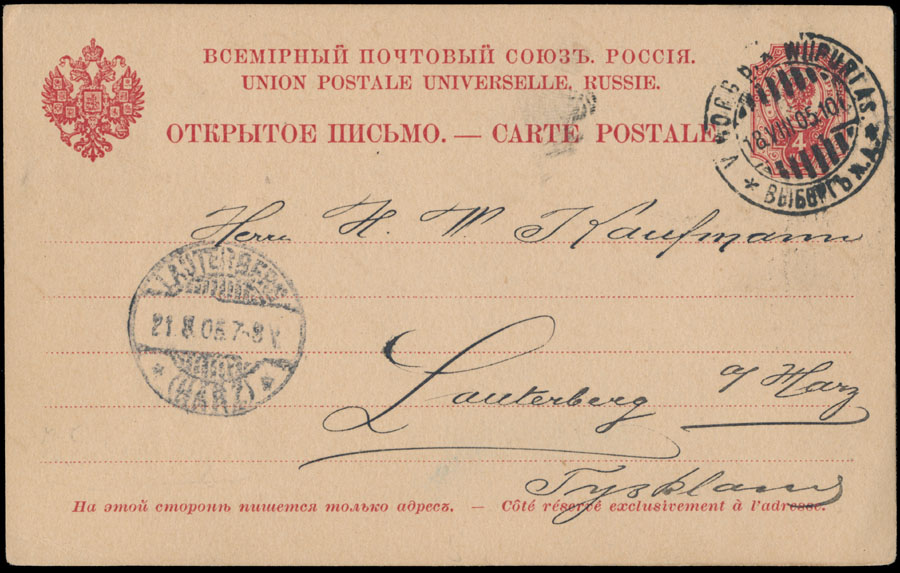 ВСЕМІРНЫЙ ПОЧТОВЫЙ СОЮЗЪ. РОССІЯ.
UNION POSTALE UNIVERSELLE. RUSSIE.
ОТКРЫТОЕ ПИСЬМО. — CARTE POSTALE
4
WIIPURI AS.
18.VIII.05.10
ВЫБОРГЪ Ж.Д.
Herrn H. W. Kaufmann
LAUTERBERG
21.8.05.7-8V.
* (HARZ) *
Lauterberg a/ Harz
Tyskland
На этой сторонѣ пишется только адресъ. — Côté réservé exclusivement à l'adresse.